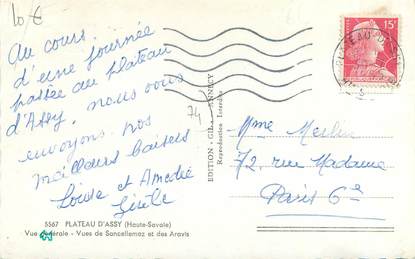 10 €
Au cours
d'une journée
passée au plateau
d'Assy, nous vous
envoyons nos
meilleurs baisers
Louise et Amédée
Gisèle
74
5567 PLATEAU D'ASSY (Haute-Savoie)
Vue générale - Vues de Sancellemoz et des Aravis
EDITION - GIL - ANNECY
Reproduction Interdite
15F
PLATEAU D'ASSY
Mme Merlin
72, rue Madame
Paris 6e